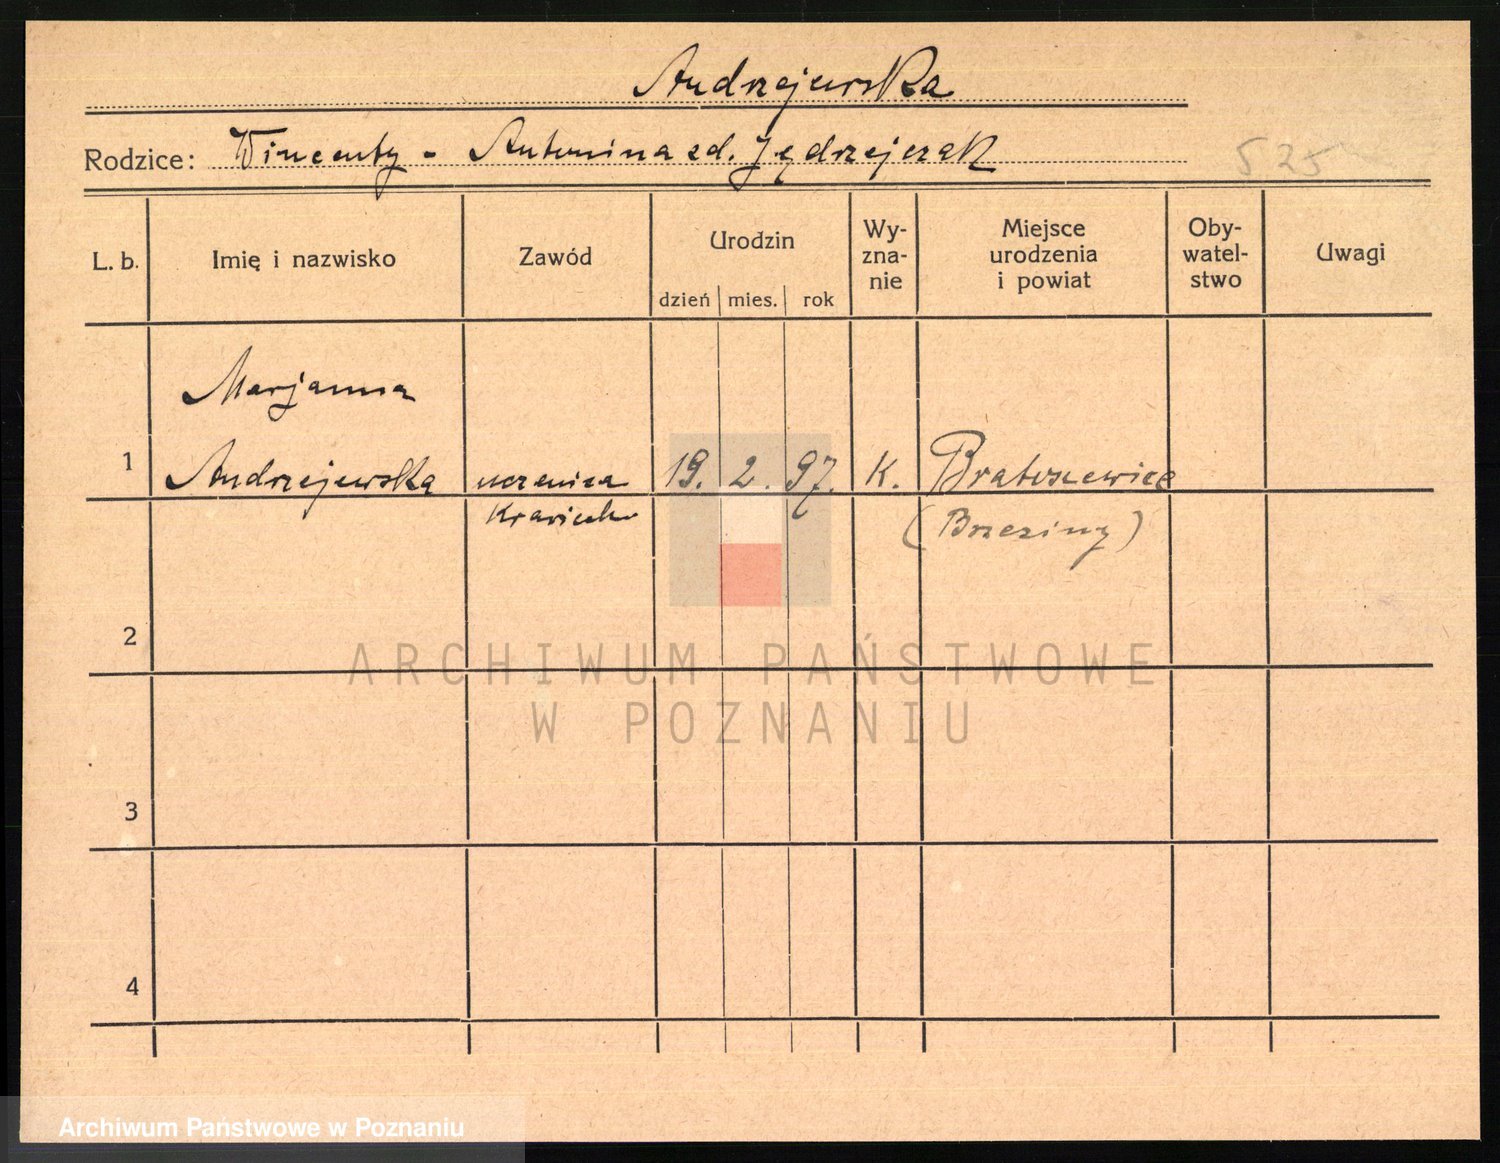 Andrzejewska
Rodzice: Wincenty - Antonina zd. Jędrzejczak
525
L. b.
Imię i nazwisko
Zawód
Urodzin
dzień mies. rok
Wy-
zna-
nie
Miejsce
urodzenia
i powiat
Oby-
watel-
stwo
Uwagi
Marjanna
1 Andrzejewska uczenica 19. 2. 97. K. Bratoszewice
(Brzeziny)
2
ARCHIWUM PAŃSTWOWE
W POZNANIU
3
4
Archiwum Państwowe w Poznaniu